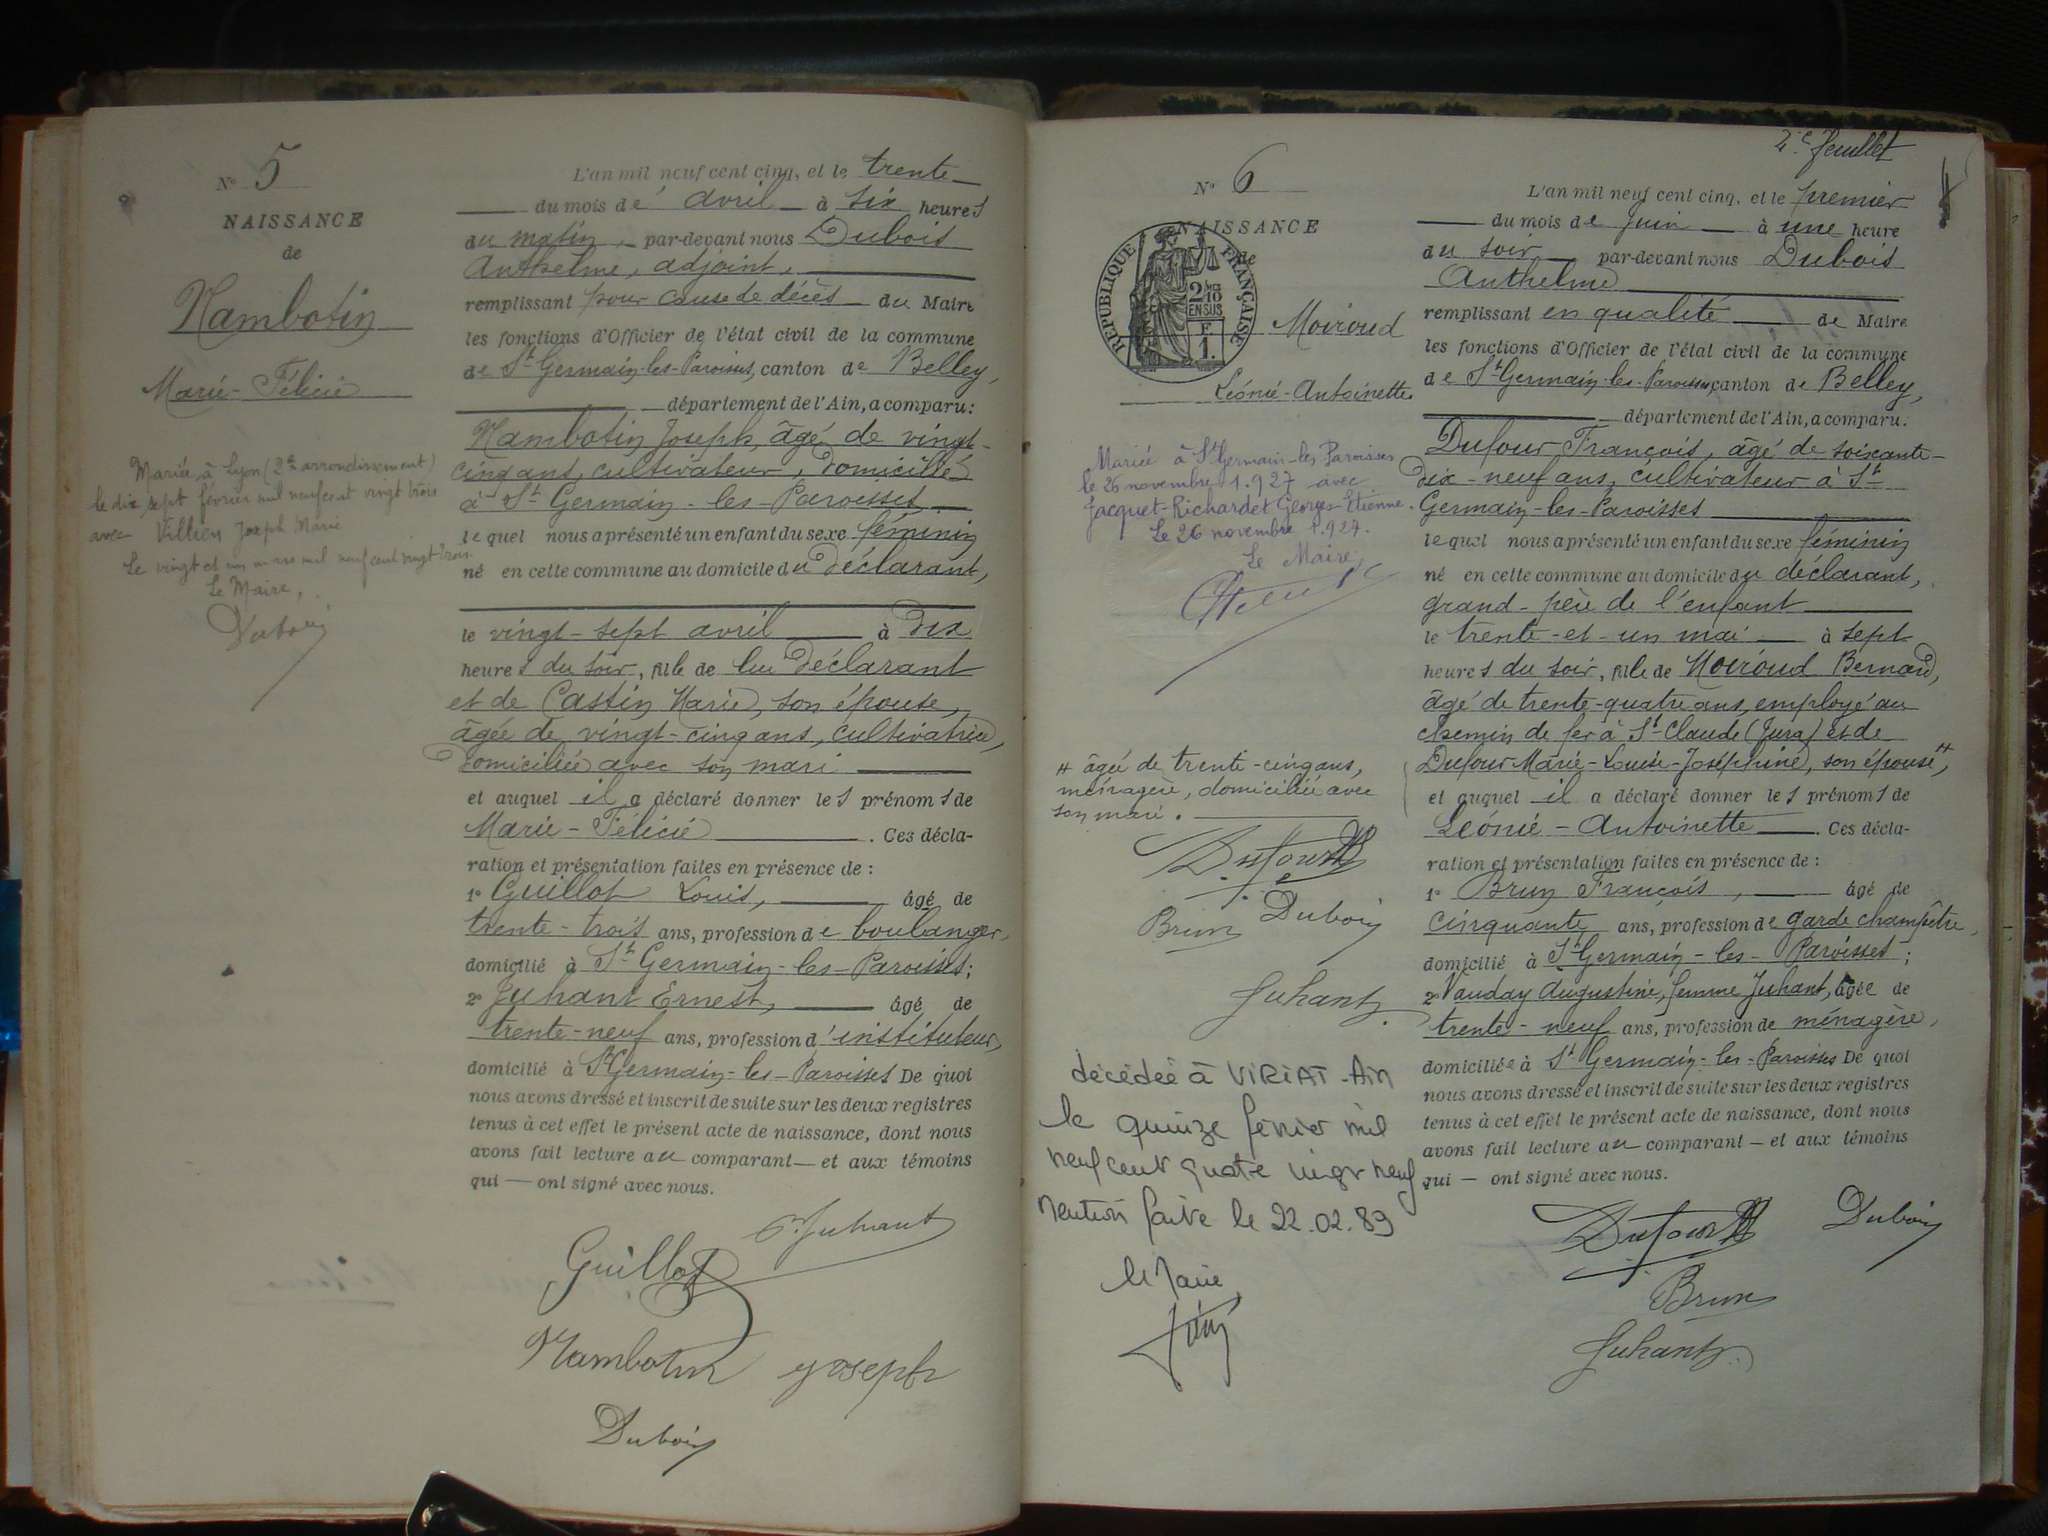 N° 5
NAISSANCE
de
Nambotin
Marie-Félicie
Mariée à Lyon (2e arrondissement)
le dix sept février mil neuf cent vingt trois
avec Villien Joseph Marie
Le vingt et un mars mil neuf cent vingt trois
Le Maire,
Dubois
L'an mil neuf cent cinq, et le trente
du mois de avril à six heures
du matin, par-devant nous Dubois
Anthelme, adjoint,
remplissant pour cause de décès du Maire
les fonctions d'Officier de l'état civil de la commune
de St Germain-les-Paroisses, canton de Belley,
département de l'Ain, a comparu:
Nambotin Joseph, âgé de vingt-
cinq ans, cultivateur, domicilié
à St Germain-les-Paroisses
lequel nous a présenté un enfant du sexe féminin
né en cette commune au domicile du déclarant,
le vingt-sept avril à dix
heures du soir, fille de lui déclarant
et de Castin Marie, son épouse,
âgée de vingt-cinq ans, cultivatrice,
domiciliée avec son mari
et auquel il a déclaré donner les prénoms de
Marie-Félicie. Ces décla-
ration et présentation faites en présence de :
1° Guillot Louis, âgé de
trente-trois ans, profession de boulanger,
domicilié à St Germain-les-Paroisses;
2° Juhant Ernest, âgé de
trente-neuf ans, profession d'instituteur,
domicilié à St Germain-les-Paroisses De quoi
nous avons dressé et inscrit de suite sur les deux registres
tenus à cet effet le présent acte de naissance, dont nous
avons fait lecture au comparant — et aux témoins
qui — ont signé avec nous.
Juhant
Guillot
Nambotin Joseph
Dubois
2e feuillet
N° 6
NAISSANCE
de
RÉPUBLIQUE FRANÇAISE
2/10
EN SUS
F
1.
Moiroud
Léonie-Antoinette
Mariée à St Germain-les-Paroisses
le 26 novembre 1.927 avec
Jacquet-Richardet Georges-Etienne.
Le 26 novembre 1.927.
Le Maire,
# âgée de trente-cinq ans,
ménagère, domiciliée avec
son mari.
Dufour
Brun Dubois
Juhant
décédée à VIRIAT-Ain
le quinze février mil
neuf cent quatre vingt neuf
mention faite le 22.02.89
le Maire
L'an mil neuf cent cinq, et le premier
du mois de juin à une heure
du soir par-devant nous Dubois
Anthelme
remplissant en qualité de Maire
les fonctions d'Officier de l'état civil de la commune
de St Germain-les-Paroisses, canton de Belley,
département de l'Ain, a comparu:
Dufour François, âgé de soixante-
dix-neuf ans, cultivateur à St
Germain-les-Paroisses
lequel nous a présenté un enfant du sexe féminin
né en cette commune au domicile du déclarant,
grand-père de l'enfant
le trente-et-un mai à sept
heures du soir, fille de Moiroud Bernard,
âgé de trente-quatre ans, employé au
chemin de fer à St Claude (Jura) et de
Dufour Marie-Louise-Joséphine, son épouse #,
et auquel il a déclaré donner les prénoms de
Léonie-Antoinette. Ces décla-
ration et présentation faites en présence de :
1° Brun François, âgé de
cinquante ans, profession de garde champêtre,
domicilié à St Germain-les-Paroisses;
2° Vauday Augustine, femme Juhant, âgée de
trente-neuf ans, profession de ménagère,
domiciliée à St Germain-les-Paroisses De quoi
nous avons dressé et inscrit de suite sur les deux registres
tenus à cet effet le présent acte de naissance, dont nous
avons fait lecture au comparant — et aux témoins
qui — ont signé avec nous.
Dufour Dubois
Brun
Juhant